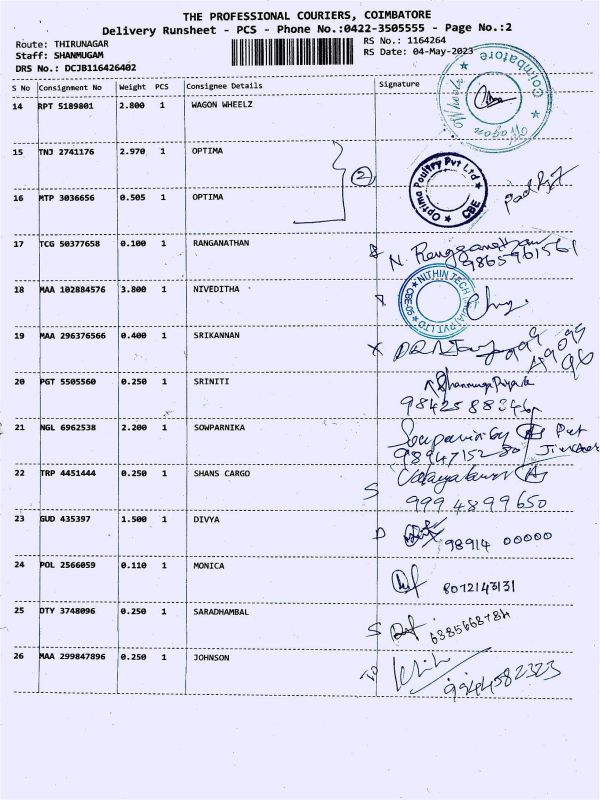 THE PROFESSIONAL COURIERS, COIMBATORE
Delivery Runsheet - PCS - Phone No.:0422-3505555 - Page No.:2
Route: THIRUNAGAR
Staff: SHANMUGAM
DRS No.: DCJB116426402
RS No.: 1164264
RS Date: 04-May-2023
S No Consignment No Weight PCS Consignee Details Signature
14 RPT 5189801 2.800 1 WAGON WHEELZ
Coimbatore
15 TNJ 2741176 2.970 1 OPTIMA
2
Optima Poultry Pvt Ltd
CBE
16 MTP 3036656 0.505 1 OPTIMA
17 TCG 50377658 0.100 1 RANGANATHAN
N. Rengganathan
9865961561
18 MAA 102884576 3.800 1 NIVEDITHA
NITHIN TECH PVT LTD
CBE-05
19 MAA 296376566 0.400 1 SRIKANNAN
20 PGT 5505560 0.250 1 SRINITI
Shanmuga Priya
21 NGL 6962538 2.200 1 SOWPARNIKA
22 TRP 4451444 0.250 1 SHANS CARGO
9994899650
23 GUD 435397 1.500 1 DIVYA
98914 00000
24 POL 2566059 0.110 1 MONICA
8072143131
25 OTY 3748096 0.250 1 SARADHAMBAL
26 MAA 299847896 0.250 1 JOHNSON
9944582323